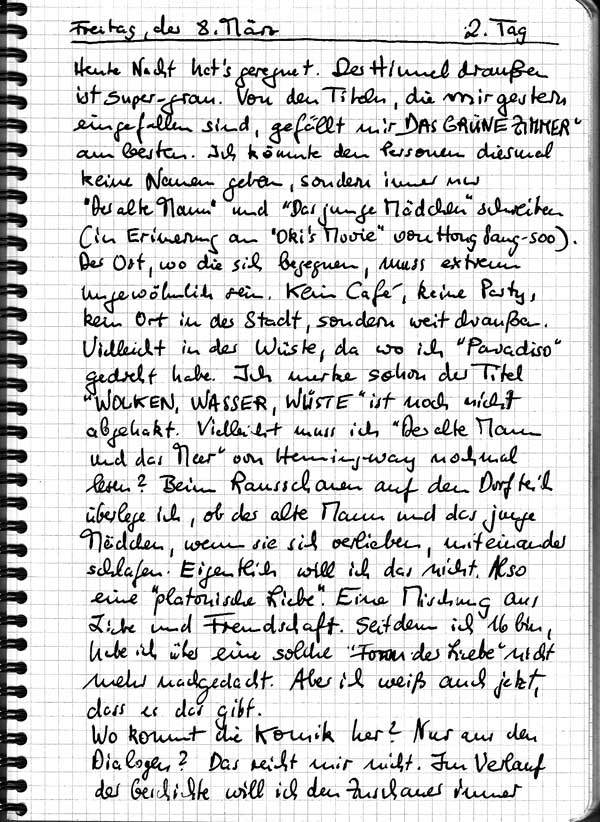 Freitag, der 8. März 2. Tag
Heute Nacht hat's geregnet. Der Himmel draußen
ist super-grau. Von den Titeln, die mir gestern
eingefallen sind, gefällt mir „DAS GRÜNE ZIMMER"
am besten. Ich könnte den Personen diesmal
keine Namen geben, sondern immer nur
"Der alte Mann" und "Das junge Mädchen" schreiben
(in Erinnerung an "Oki's Movie" von Hong Sang-soo).
Der Ort, wo die sich begegnen, muss extrem
ungewöhnlich sein. Kein Café, keine Party,
kein Ort in der Stadt, sondern weit draußen.
Vielleicht in der Wüste, da wo ich "Paradiso"
gedreht habe. Ich merke schon der Titel
"WOLKEN, WASSER, WÜSTE" ist noch nicht
abgehakt. Vielleicht muss ich "Der alte Mann
und das Meer" von Hemingway nochmal
lesen? Beim Rausschauen auf den Dorfteich
überlege ich, ob der alte Mann und das junge
Mädchen, wenn sie sich verlieben, miteinander
schlafen. Eigentlich will ich das nicht. Also
eine "platonische Liebe". Eine Mischung aus
Liebe und Freundschaft. Seitdem ich 16 bin,
habe ich über eine solche "Form der Liebe" nicht
mehr nachgedacht. Aber ich weiß auch jetzt,
dass es das gibt.
Wo kommt die Komik her? Nur aus den
Dialogen? Das reicht mir nicht. Im Verlauf
der Geschichte will ich den Zuschauer immer